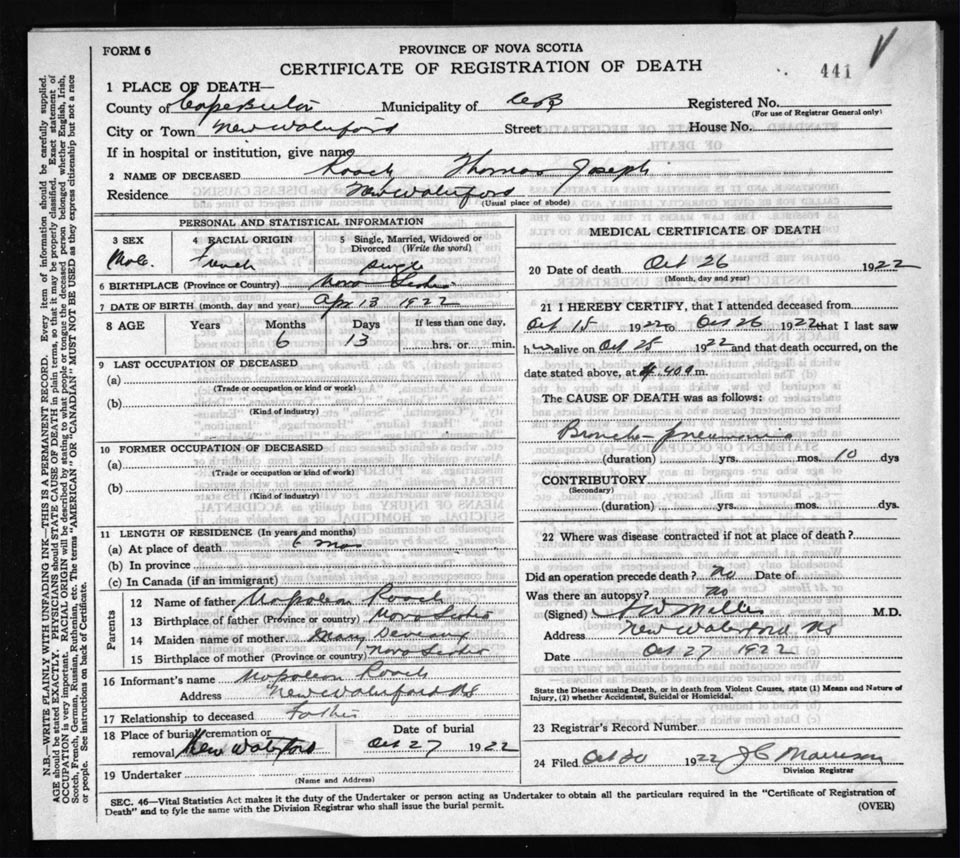 FORM 6
PROVINCE OF NOVA SCOTIA
CERTIFICATE OF REGISTRATION OF DEATH
441
1 PLACE OF DEATH—
County of Cape Breton Municipality of C B Registered No.
(For use of Registrar General only)
City or Town New Waterford Street House No.
If in hospital or institution, give name
2 NAME OF DECEASED Roach Thomas Joseph
Residence New Waterford
(Usual place of abode)
PERSONAL AND STATISTICAL INFORMATION
3 SEX 4 RACIAL ORIGIN 5 Single, Married, Widowed or
Divorced (Write the word)
Male. French Single
6 BIRTHPLACE (Province or Country) Nova Scotia
7 DATE OF BIRTH (month, day and year) Apr 13 1922
8 AGE Years Months Days If less than one day,
6 13 hrs. or min.
9 LAST OCCUPATION OF DECEASED
(a)
(Trade or occupation or kind or work)
(b)
(Kind of industry)
10 FORMER OCCUPATION OF DECEASED
(a)
(Trade or occupation or kind of work)
(b)
(Kind of industry)
11 LENGTH OF RESIDENCE (In years and months)
(a) At place of death 6 mos
(b) In province
(c) In Canada (if an immigrant)
Parents
12 Name of father Napoleon Roach
13 Birthplace of father (Province or country) Nova Scotia
14 Maiden name of mother Mary Deveaux
15 Birthplace of mother (Province or country) Nova Scotia
16 Informant's name Napoleon Roach
Address New Waterford NS
17 Relationship to deceased Father
18 Place of burial, cremation or Date of burial
removal New Waterford Oct 27 1922
19 Undertaker
(Name and Address)
MEDICAL CERTIFICATE OF DEATH
20 Date of death Oct 26 1922
(Month, day and year)
21 I HEREBY CERTIFY, that I attended deceased from
Oct 15 1922 to Oct 26 1922 that I last saw
h im alive on Oct 25 1922 and that death occurred, on the
date stated above, at 4.40 a m.
The CAUSE OF DEATH was as follows:
Broncho-pneumonia
(duration) yrs. mos. 10 dys
CONTRIBUTORY
(Secondary)
(duration) yrs. mos. dys.
22 Where was disease contracted if not at place of death?
Did an operation precede death? no Date of
Was there an autopsy? no
(Signed) Miller M.D.
Address New Waterford NS
Date Oct 27 1922
State the Disease causing Death, or in death from Violent Causes, state (1) Means and Nature of
Injury, (2) whether Accidental, Suicidal or Homicidal.
23 Registrar's Record Number
24 Filed Oct 30 1922 J C Morrison
Division Registrar
SEC. 46—Vital Statistics Act makes it the duty of the Undertaker or person acting as Undertaker to obtain all the particulars required in the "Certificate of Registration of
Death" and to fyle the same with the Division Registrar who shall issue the burial permit.
(OVER)
N.B.—WRITE PLAINLY WITH UNFADING INK—THIS IS A PERMANENT RECORD. Every item of information should be carefully supplied.
AGE should be stated EXACTLY. PHYSICIANS should STATE CAUSE OF DEATH in plain terms, so that it may be properly classified. Exact statement of
OCCUPATION is very important. RACIAL ORIGIN will be described by stating to what people or tongue the deceased person belonged whether English, Irish,
Scotch, French, German, Russian, Ruthenian, etc. The terms "AMERICAN" OR "CANADIAN" MUST NOT BE USED as they express citizenship but not a race
or people. See instructions on back of Certificate.